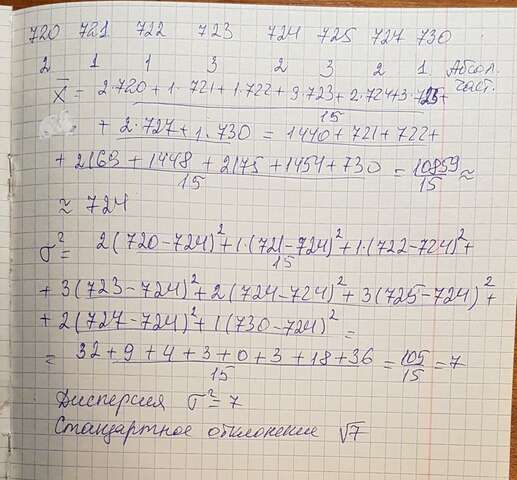 720 721 722 723 724 725 727 730
2 1 1 3 2 3 2 1 Абсол. част.
x̄ = 2·720+1·721+1·722+3·723+2·724+3·725+
15
+ 2·727+1·730 = 1440+721+722+
+ 2169+1448+2175+1454+730 = 10859 ≈
15 15
≈ 724
σ² = 2(720-724)²+1·(721-724)²+1·(722-724)²+
15
+ 3(723-724)²+2(724-724)²+3(725-724)²+
+ 2(727-724)²+1(730-724)² =
= 32+9+4+3+0+3+18+36 = 105 = 7
15 15
Дисперсия σ²=7
Стандартное отклонение √7